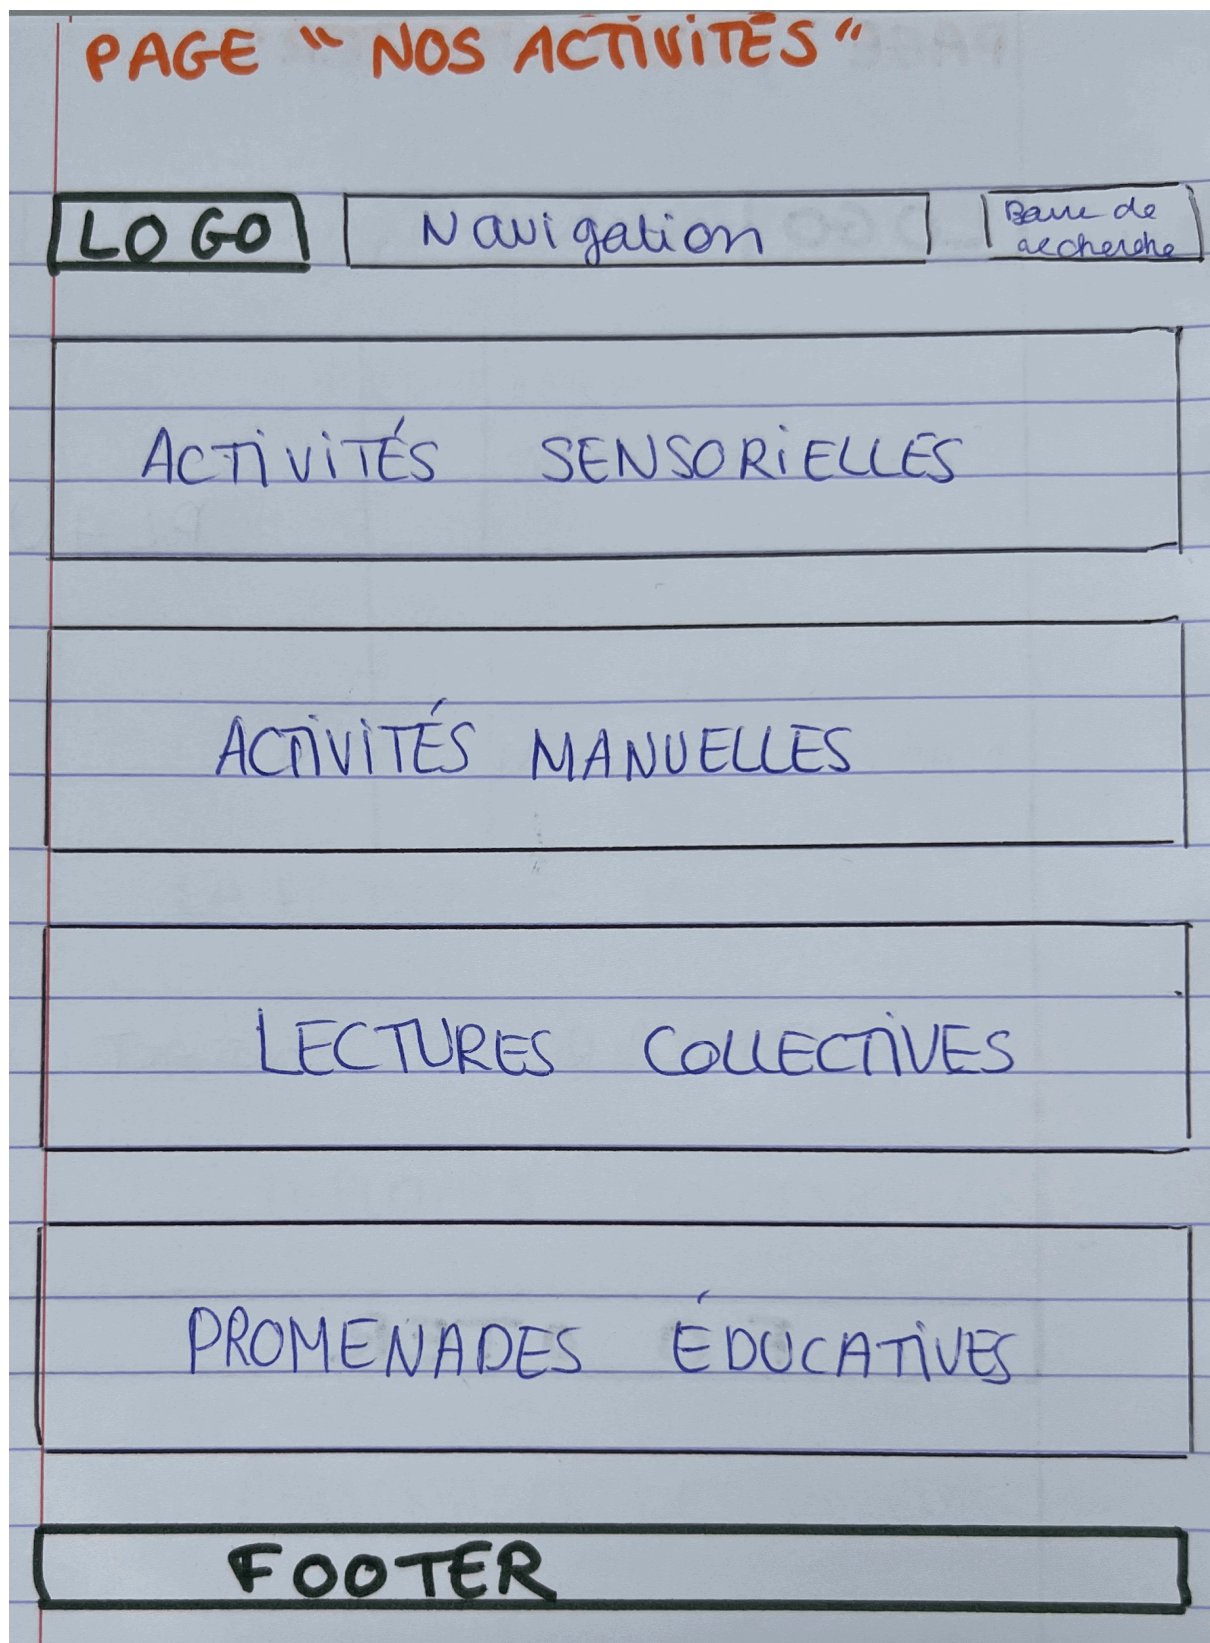 PAGE " NOS ACTIVITÉS "
LOGO
Navigation
Barre de
recherche
ACTIVITÉS SENSORIELLES
ACTIVITÉS MANUELLES
LECTURES COLLECTIVES
PROMENADES ÉDUCATIVES
FOOTER